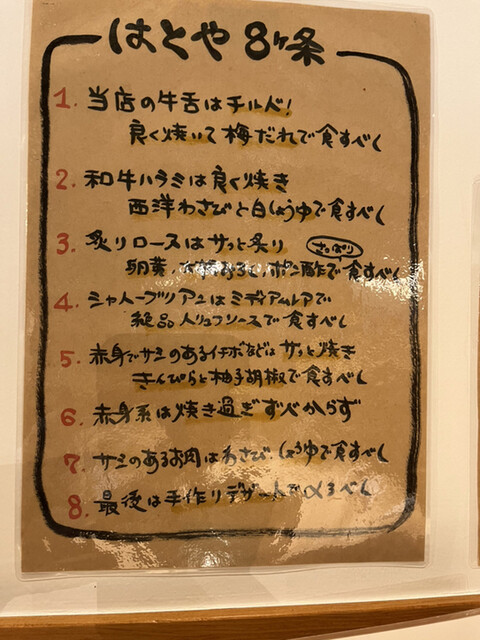 はとや 8ヶ条
1. 当店の牛舌はチルド!
良く焼いて梅だれで食すべし
2. 和牛ハラミは良く焼き
西洋わさびと白しょうゆで食すべし
3. 炙りロースはサッと炙り
さっぱり
卵黄、大根おろし、ポン酢で食すべし
4. シャトーブリアンはミディアムレアで
絶品トリュフソースで食すべし
5. 赤身でサシのあるイチボなどはサッと焼き
きんぴらと柚子胡椒で食すべし
6. 赤身系は焼き過ぎずべからず
7. サシのあるお肉はわさびしょうゆで食すべし
8. 最後は手作りデザートで〆るべし